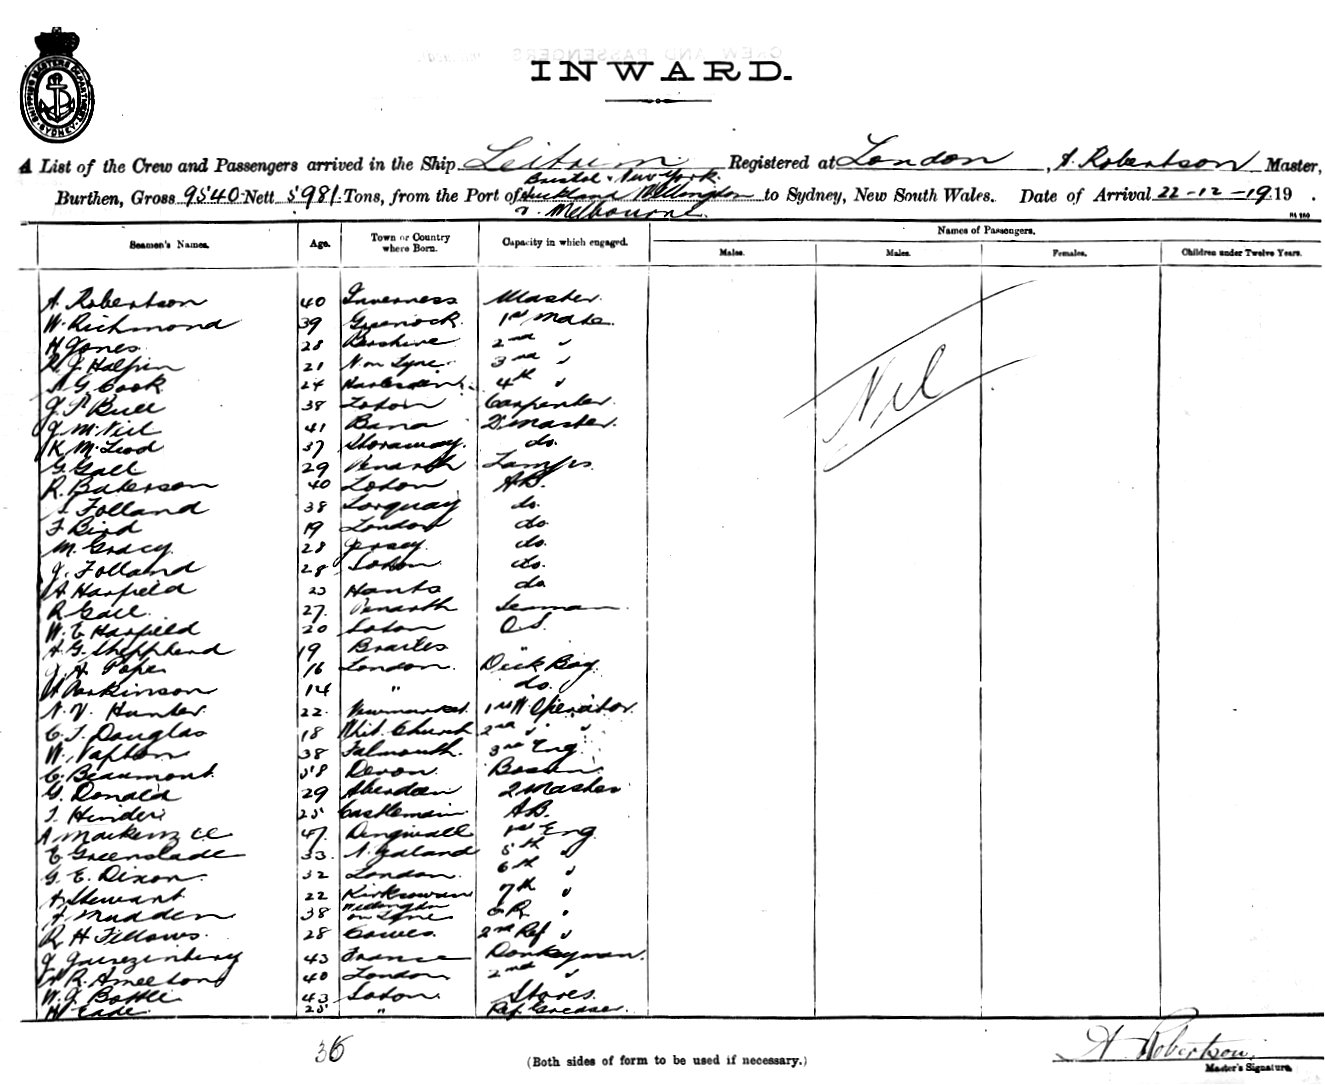 SHIPPING MASTERS DEPARTMENT SYDNEY
INWARD.
A List of the Crew and Passengers arrived in the Ship Leitrim Registered at London, A. Robertson Master,
Bristol New York
Burthen, Gross 9540 Nett 5981 Tons, from the Port of Auckland Wellington to Sydney, New South Wales. Date of Arrival 22-12-1919.
Melbourne
Seamen's Names. Age. Town or Country where Born. Capacity in which engaged. Names of Passengers.
Males. Males. Females. Children under Twelve Years.
A. Robertson 40 Inverness Master
W. Richmond 39 Greenock 1st Mate
H Jones 28 2nd "
R J Halpin 21 N on Tyne 3rd "
A G. Cook 24 4th "
J. P Bull 38 Soton Carpenter
J McNeil 41 Barra
K McLeod 37 Storaway do.
G. Gall 29 Penarth Lamps
R. 40 Soton AB.
Folland 38 Torquay do.
F Bird 19 London do
M. 28 Jersey do.
J. Folland 28 Soton do.
A Harfield 23 Hants do
R Gall 27 Penarth Seaman
W. E Harfield 20 Soton O.S.
A. G. Shepphend 19 "
J. A Pope 16 London Deck Boy
Parkinson 14 " do.
N. V. Hunter 22 Newmarket 1st W. Operator
C. J. Douglas 18 Whit Church 2nd " "
W. 38 Falmouth 3rd Eng
C. Beaumont 58 Devon Bosun
G. Donald 29 Aberdeen 2 Master
25 Castlemain AB.
A 47 Dingwall 1st Eng
E Greenslade 33 N. Zealand 5th "
G. E. Dixon 32 London 6th "
A Stewart 22 7th "
A Madden 38 Willington on Tyne "
R H Fellows 28 Cowes 2nd Ref "
J 43 France Donkeyman
R. 40 London 2nd "
W. J Bottle 43 Soton Stores
H Eade 25 " Ref. Greaser
Nil
36
(Both sides of form to be used if necessary.)
A Robertson
Master's Signature.